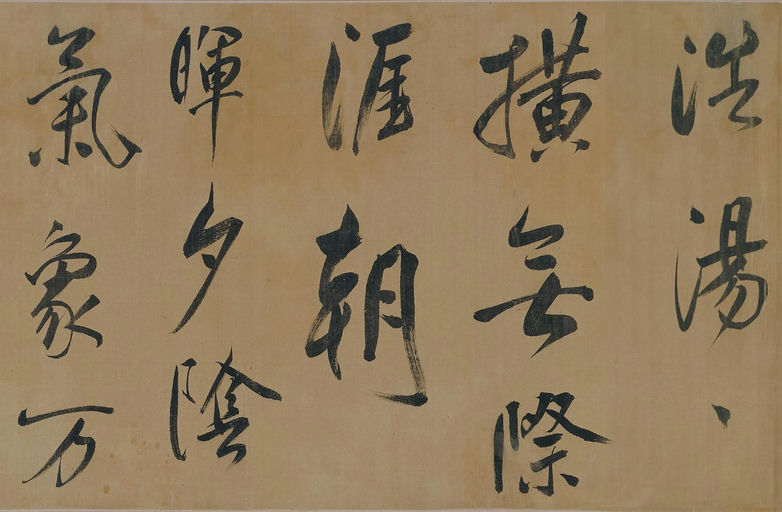 浩湯、
橫無際
涯朝
暉夕陰
氣象万